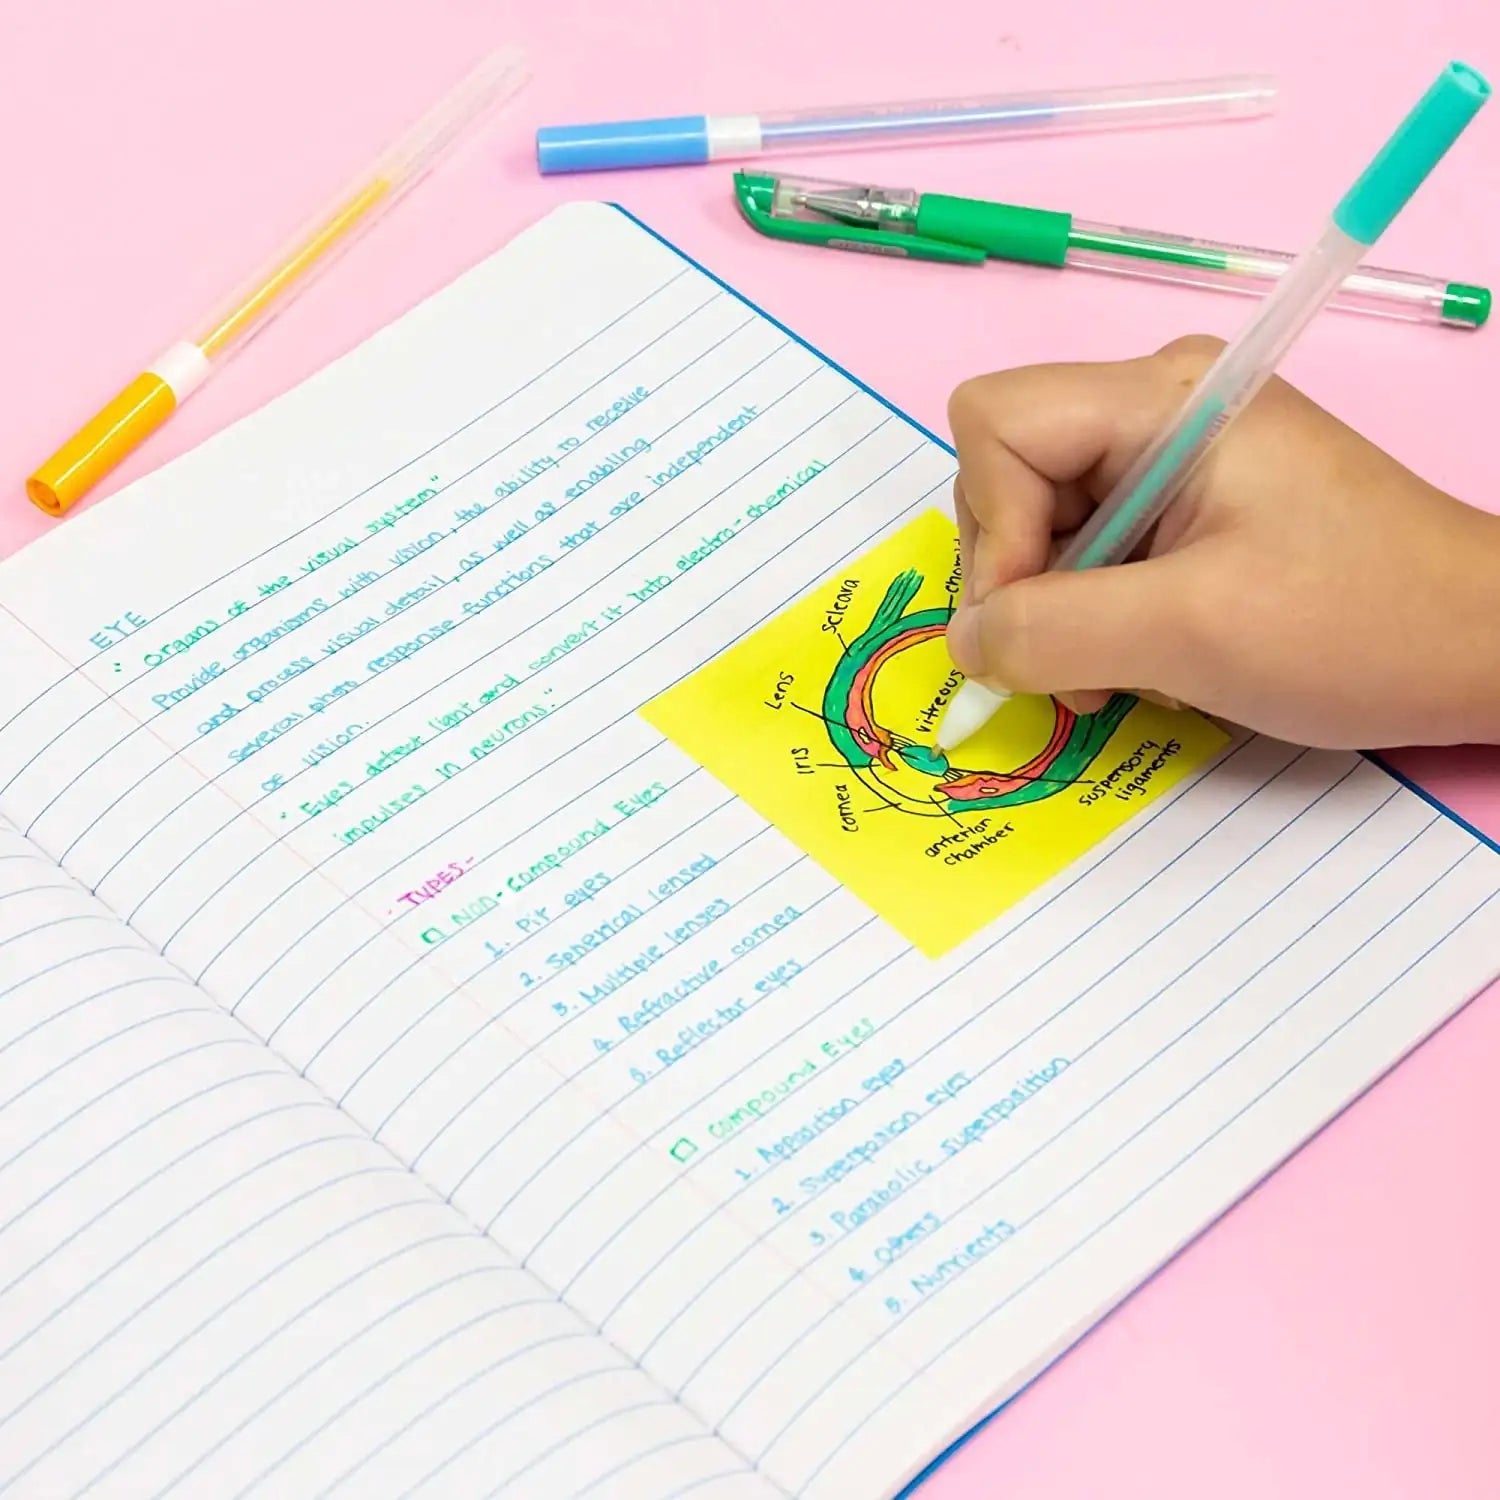 EYE
" Organs of the visual system"
Provide organisms with vision, the ability to receive
and process visual detail, as well as enabling
several photo response functions that are independent
of vision.
" Eyes detect light and convert it into electro-chemical
impulses in neurons."
- TYPES-
Non-compound Eyes
1. Pit eyes
2. Spherical lensed
3. Multiple lenses
4. Refractive cornea
5. Reflector eyes
Compound Eyes
1. Apposition eyes
2. Superposition eyes
3. Parabolic superposition
4. Others
5. Nutrients
scleara
Lens
Iris
cornea
anterior
chamber
suspensory
ligaments
vitreous